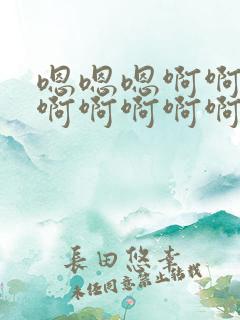 嗯嗯嗯啊啊
啊啊啊啊啊
長田悠幸
未经同意禁止转载